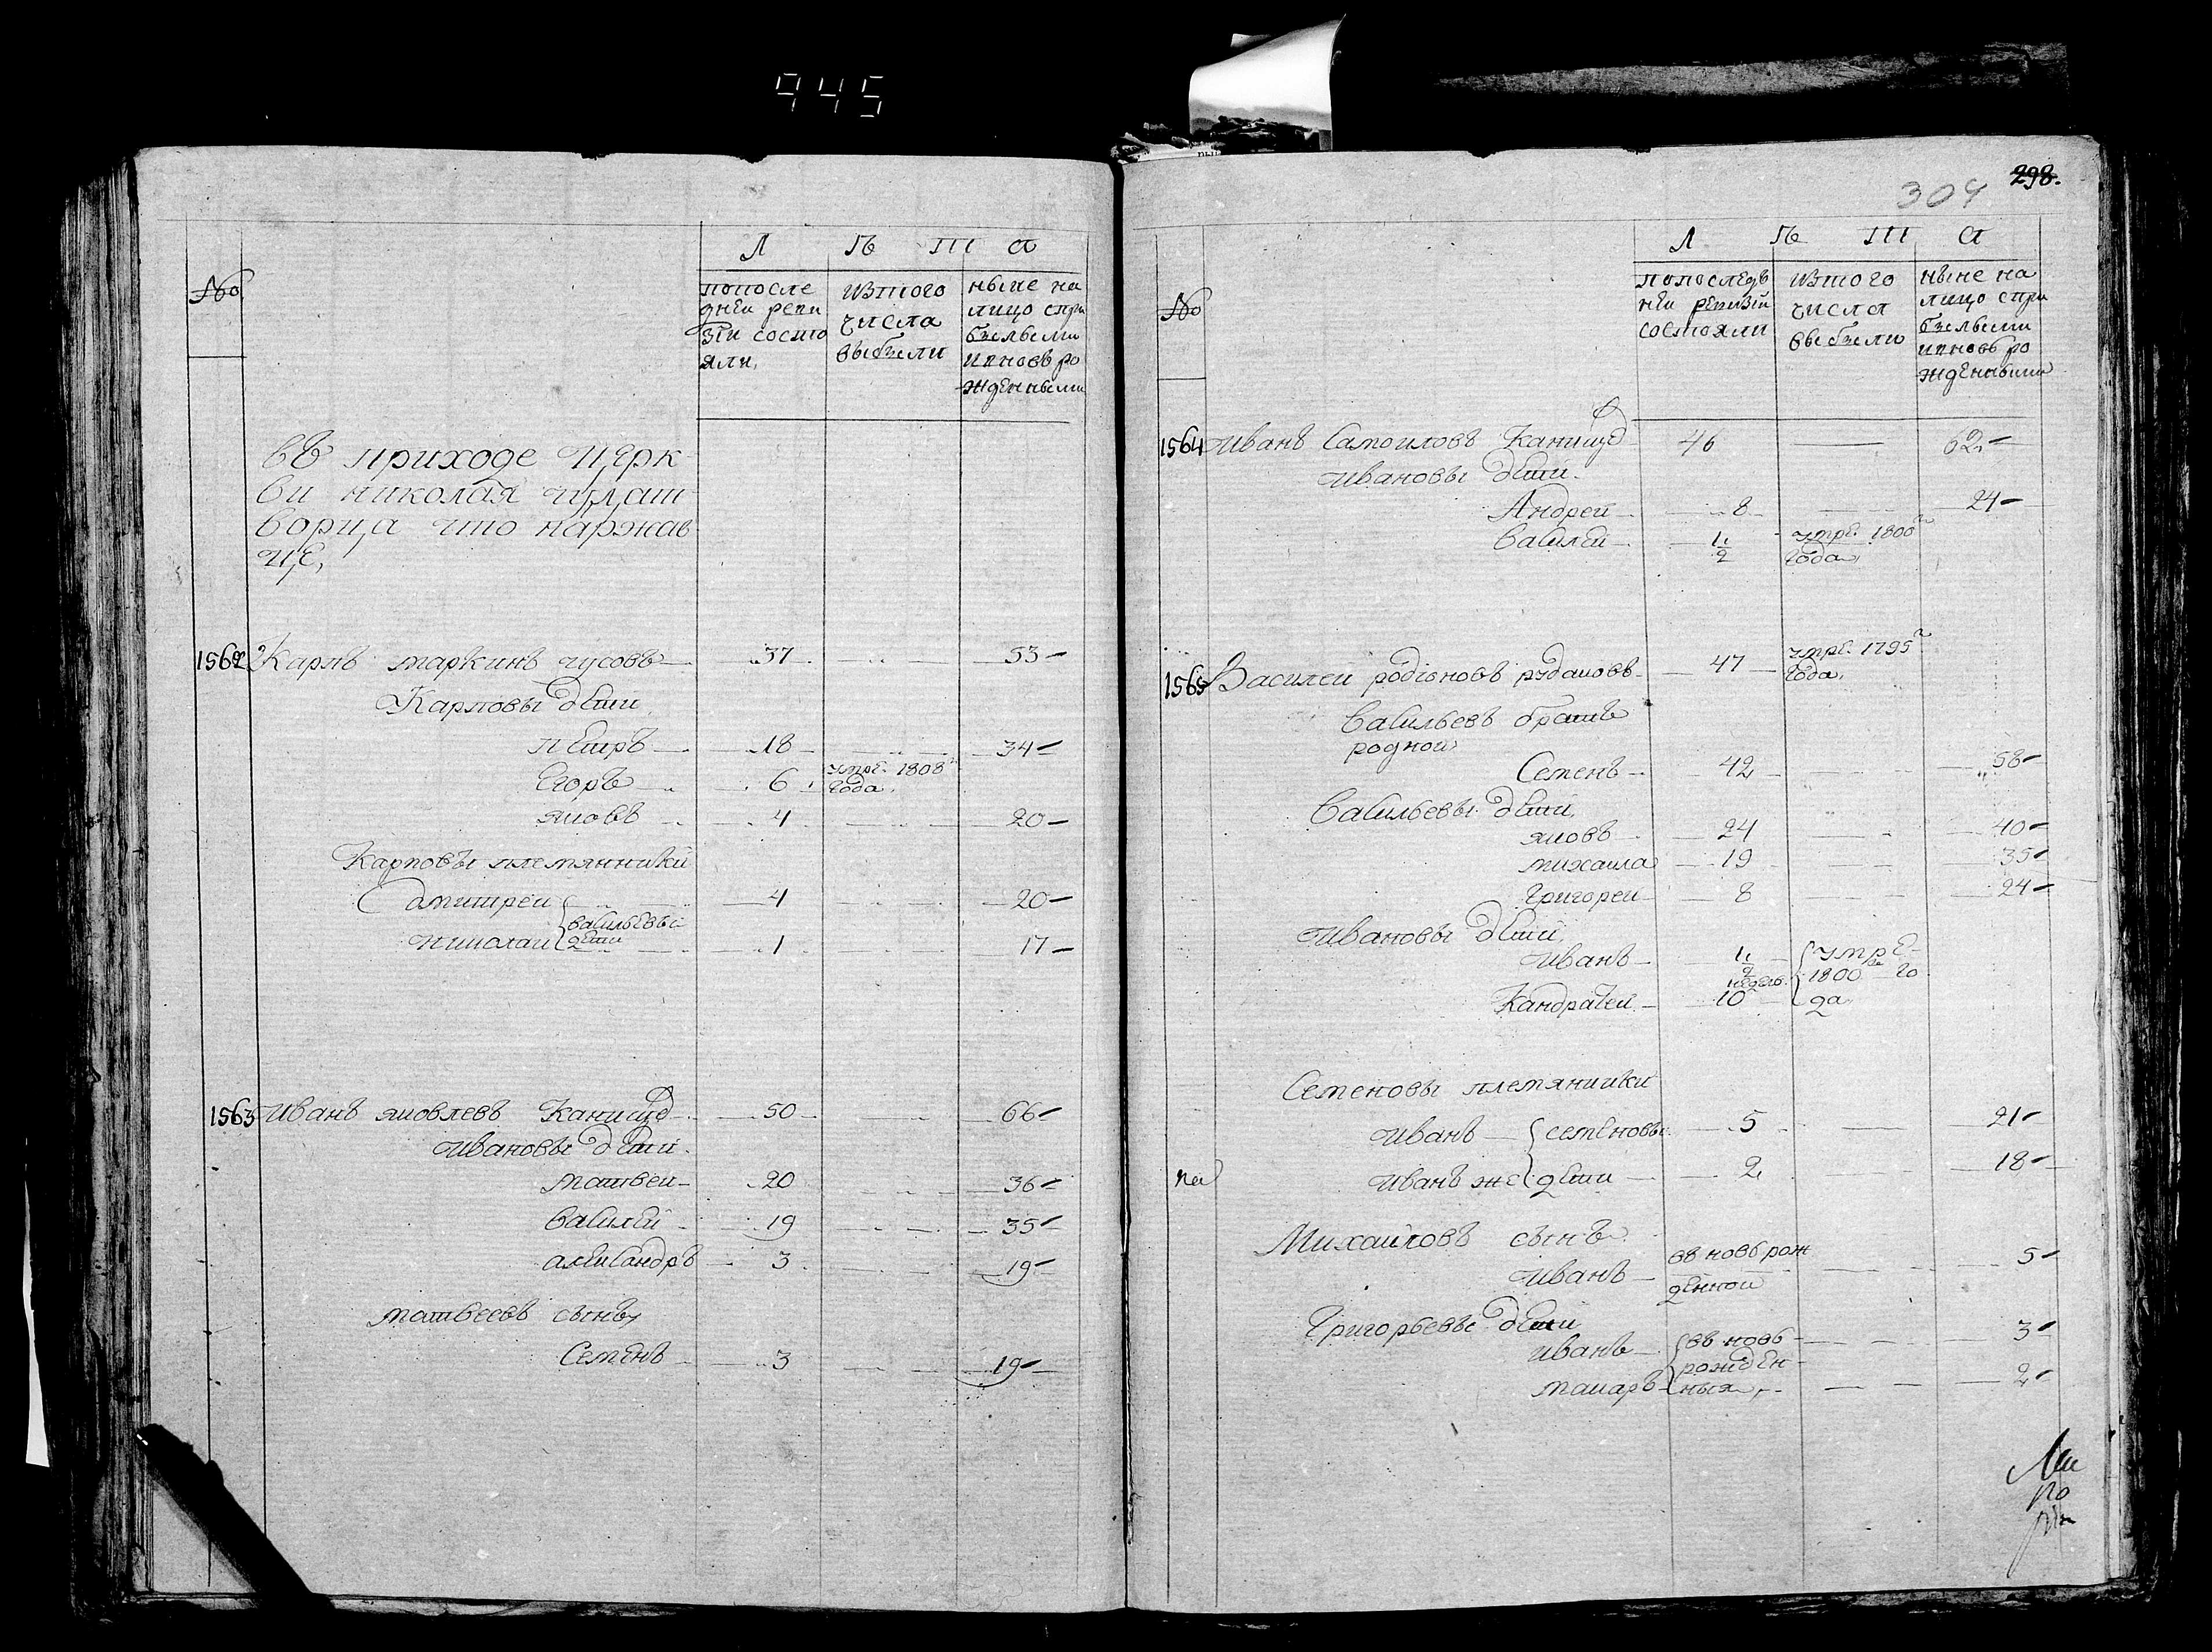 945
№
Л ѣ т а
попосле
дней реви
зіи состо
яли,
изтого
числа
выбыли
ныне на
лицоспри
былыми
ивновь ро
жденными
въ приходе церк
ви николая чудот
ворца что наржав
це,
1562 Карпъ маркинъ чусовъ 37 53
Карповы дети
петръ 18 34
Егоръ 6 умре. 1808г
года.
яковъ 4 20
Карповы племянники
дмитреи 4 20
николаи васильевы 1 17
дети
1563 иванъ яковлевъ Канищев 50 66
ивановы дети.
матвеи 20 36
василеи 19 35
александръ 3 19
матвеевъ сынъ
Семенъ 3 19
298.
304
№
Л ѣ т а
попослед
неи ревизіи
состояли
изтого
числа
выбыли
ныне на
лицо спри
былыми
ивновь ро
жденными
1564 иванъ Самоиловъ Канищев 46 62
ивановы дети.
Андреи 8 24
василеи 1/2 умре. 1800г
года,
1565 Василеи родіоновъ рудаковъ 47 умре. 1795г
года,
васильевъ братъ
роднои
Семенъ 42 58
васильевы дети,
яковъ 24 40
михаила 19 35
григореи 8 24
ивановы дети,
иванъ 1/2 умре
недель 1800го го
Кандратеи 10 да,
Семеновы племянники
иванъ семеновы 5 21
иванъ же дети 2 18
Михаиловъ сынъ
иванъ вновь рож 5
денной
Григорьевы дети
иванъ вновь 3
рожден
макаръ ныя, 2